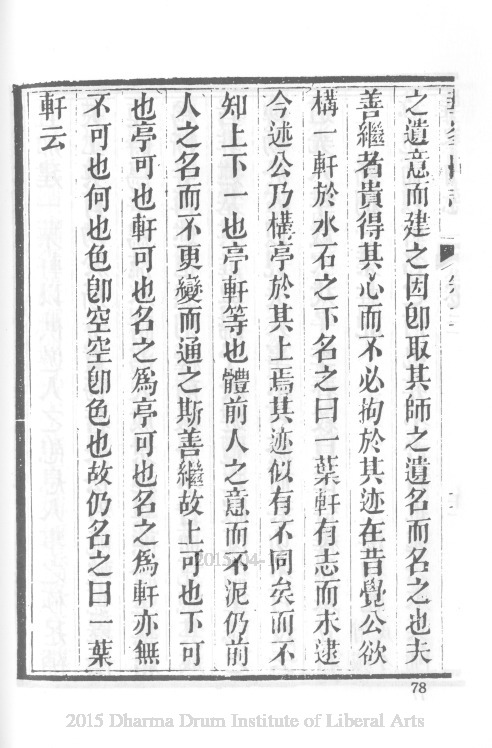 之遺意而建之因卽取其師之遺名而名之也夫
善繼者貴得其心而不必拘於其迹在昔覺公欲
構一軒於水石之下名之曰一葉軒有志而未逮
今述公乃構亭於其上焉其迹似有不同矣而不
知上下一也亭軒等也體前人之意而不泥仍前
人之名而不更變而通之斯善繼故上可也下可
也亭可也軒可也名之爲亭可也名之爲軒亦無
不可也何也色卽空空卽色也故仍名之曰一葉
軒云
78
2015 Dharma Drum Institute of Liberal Arts